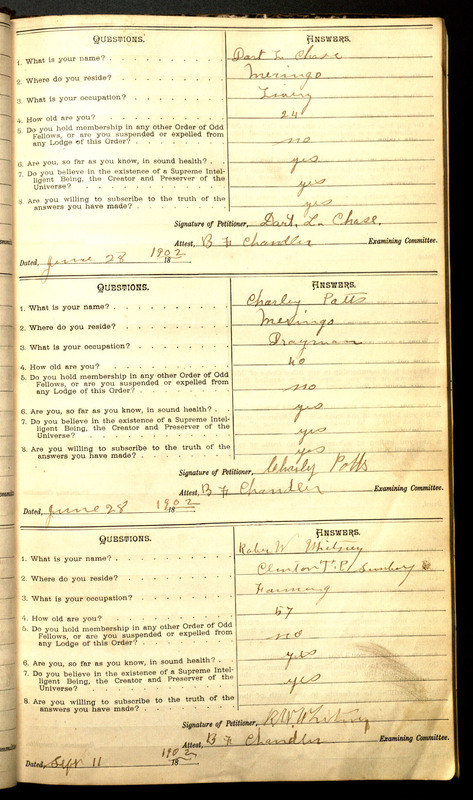 QUESTIONS. ANSWERS.
1. What is your name? Dart L. Chase
2. Where do you reside? Meringo
3. What is your occupation? Livery
4. How old are you? 24
5. Do you hold membership in any other Order of Odd
Fellows, or are you suspended or expelled from
any Lodge of this Order? no
6. Are you, so far as you know, in sound health? yes
7. Do you believe in the existence of a Supreme Intel-
ligent Being, the Creator and Preserver of the
Universe? yes
8. Are you willing to subscribe to the truth of the
answers you have made? yes
Signature of Petitioner, Dart. L. Chase.
Attest, B F Chandler Examining Committee.
Dated, June 28 1902 18
QUESTIONS. ANSWERS.
1. What is your name? Charley Potts
2. Where do you reside? Meringo
3. What is your occupation? Drayman
4. How old are you? 40
5. Do you hold membership in any other Order of Odd
Fellows, or are you suspended or expelled from
any Lodge of this Order? no
6. Are you, so far as you know, in sound health? yes
7. Do you believe in the existence of a Supreme Intel-
ligent Being, the Creator and Preserver of the
Universe? yes
8. Are you willing to subscribe to the truth of the
answers you have made? yes
Signature of Petitioner, Charly Potts
Attest, B F Chandler Examining Committee.
Dated, June 28 1902 18
QUESTIONS. ANSWERS.
1. What is your name? W Whitney
2. Where do you reside? Clinton T.P.
3. What is your occupation? Farming
4. How old are you? 57
5. Do you hold membership in any other Order of Odd
Fellows, or are you suspended or expelled from
any Lodge of this Order? no
6. Are you, so far as you know, in sound health? yes
7. Do you believe in the existence of a Supreme Intel-
ligent Being, the Creator and Preserver of the
Universe? yes
8. Are you willing to subscribe to the truth of the
answers you have made?
Signature of Petitioner, R.W. Whitney
Attest, B F Chandler Examining Committee.
Dated, Sept 11 1902 18